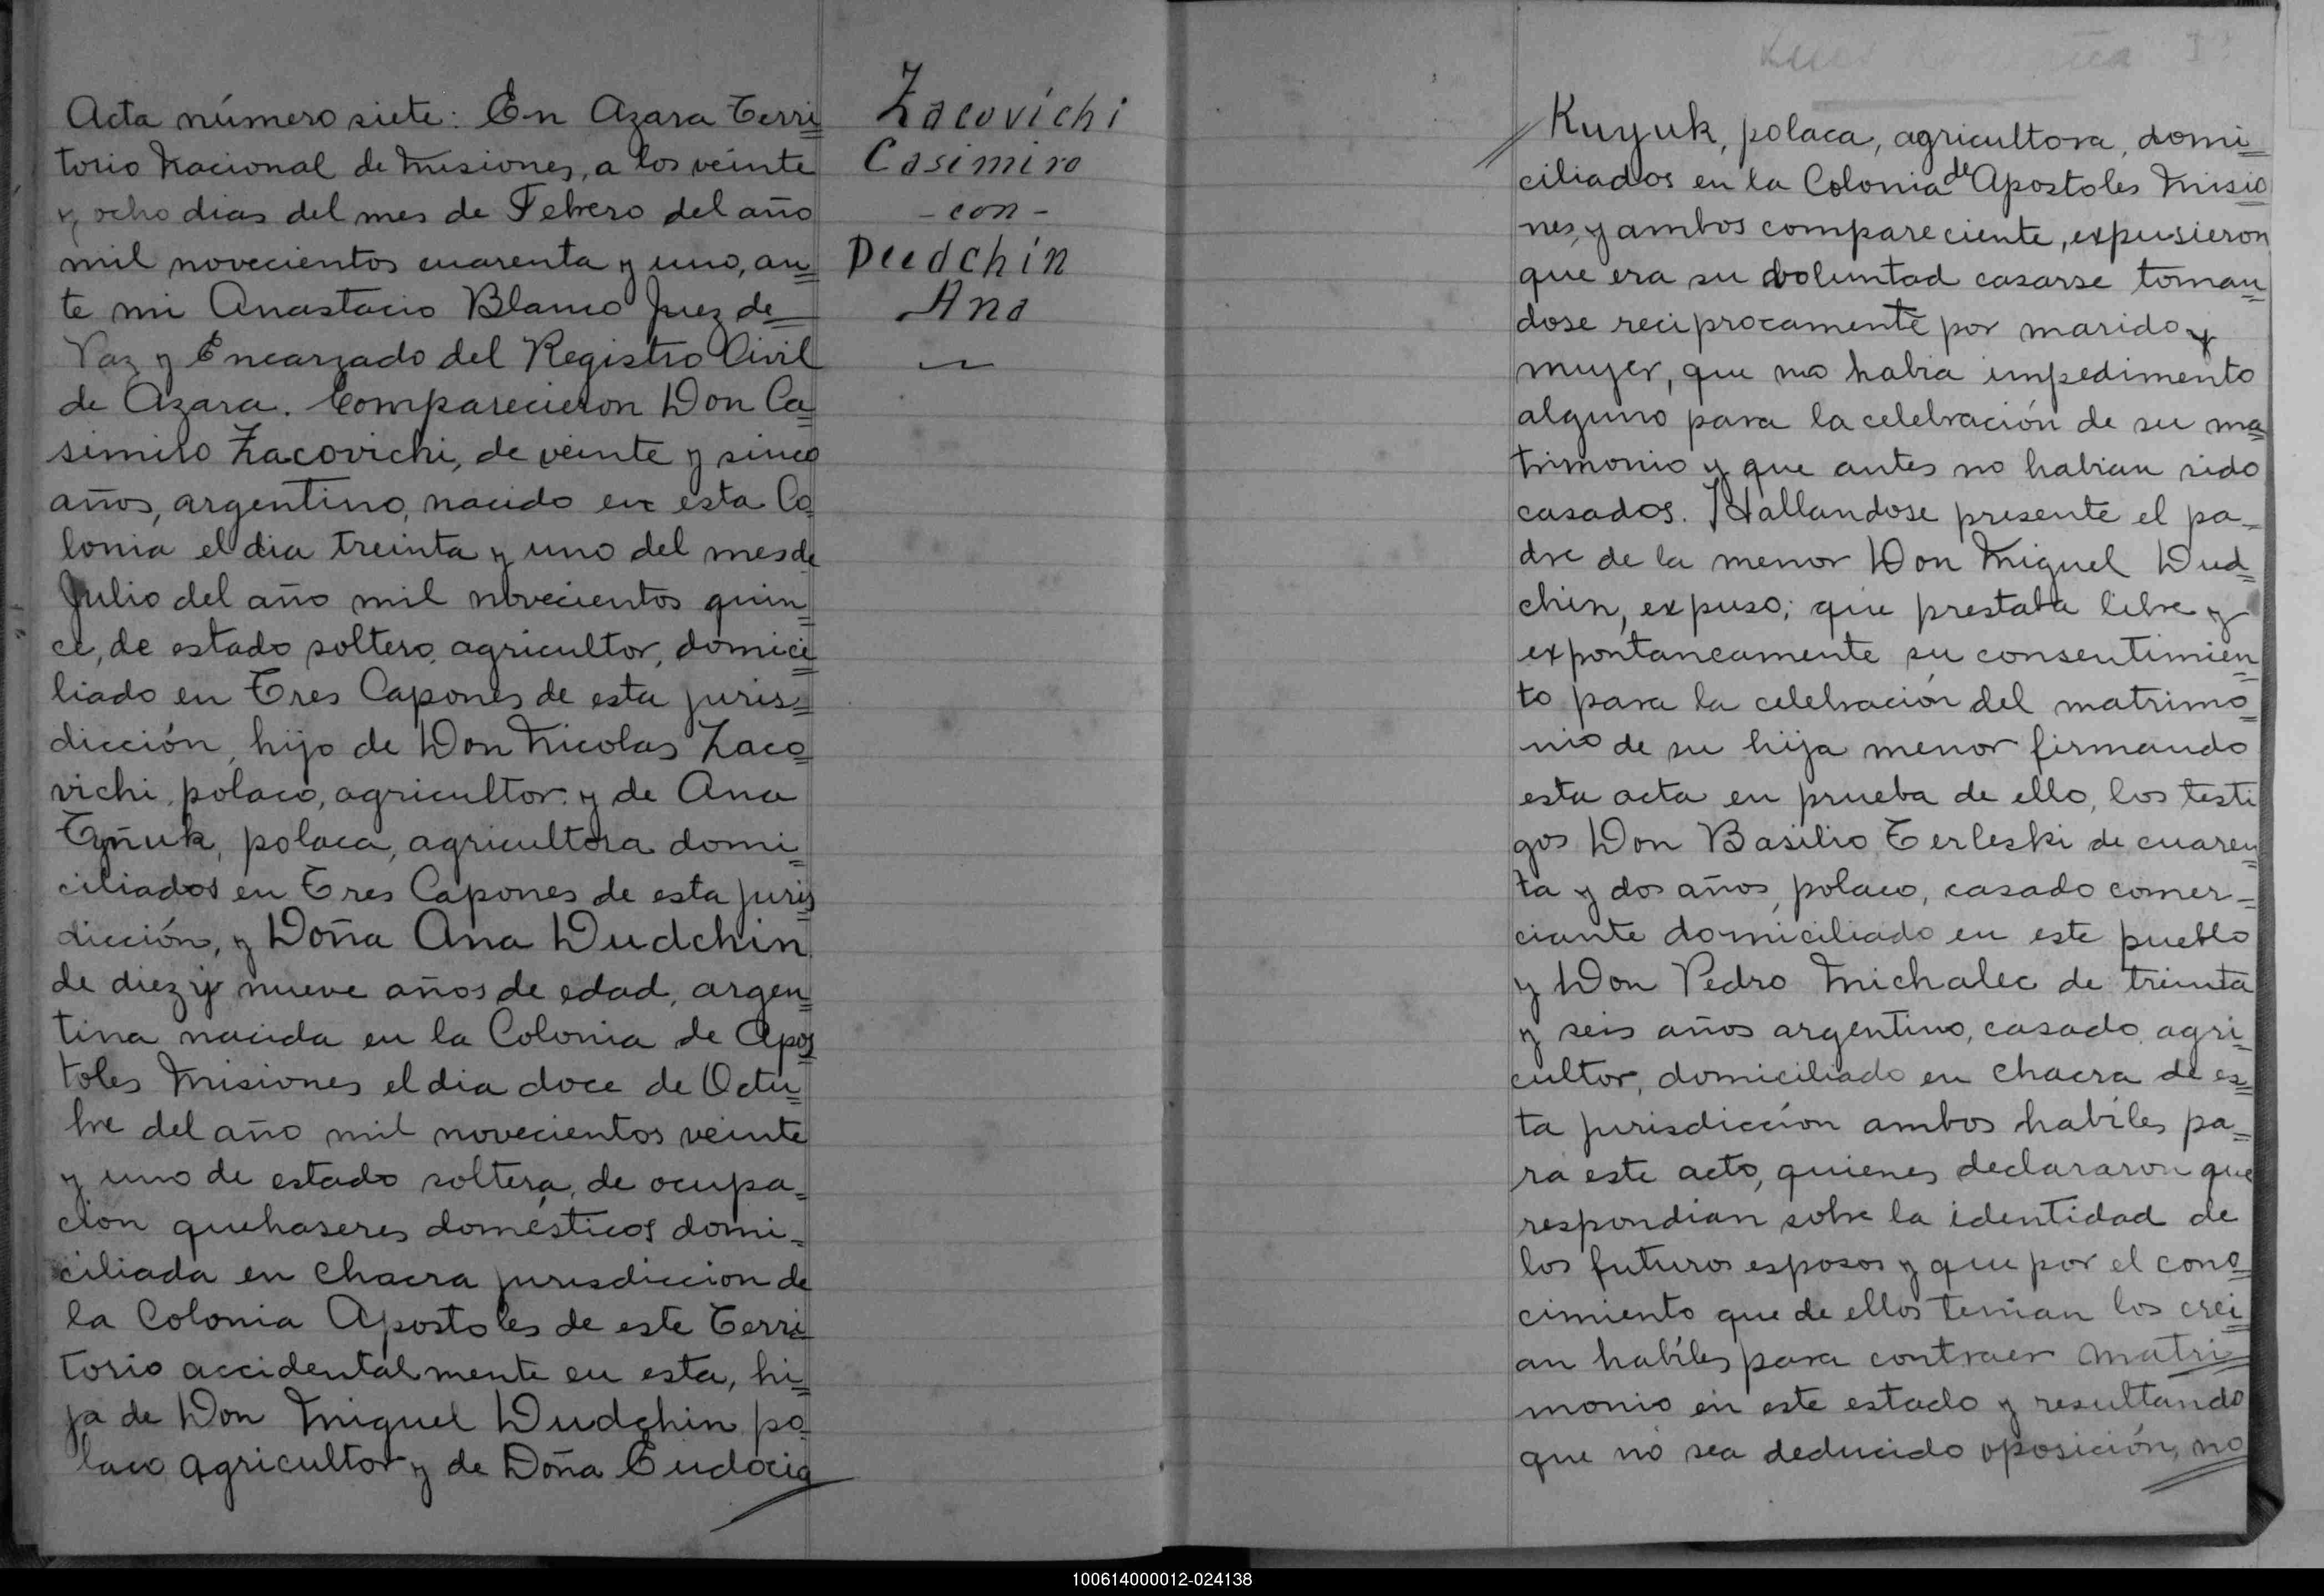 Acta número siete: En Azara Terri
torio Nacional de Misiones, a los veinte
y ocho dias del mes de Febrero del año
mil novecientos cuarenta y uno, an
te mi Anastacio Blanco Juez de
Paz y Encargado del Registro Civil
de Azara. Comparecieron Don Ca
similo Zacovichi, de veinte y sinco
años, argentino, nacido en esta Co
lonia el dia treinta y uno del mes de
Julio del año mil novecientos quin
ce, de estado soltero, agricultor, domici
liado en Tres Capones de esta juris
dicción, hijo de Don Nicolas Zaco
vichi, polaco, agricultor y de Ana
Tyñuk, polaca, agricultora domi
ciliados en Tres Capones de esta juris
dicción, y Doña Ana Dudchin
de diez y nueve años de edad, argen
tina nacida en la Colonia de Apos
toles Misiones el dia doce de Octu
bre del año mil novecientos veinte
y uno de estado soltera, de ocupa
cion quehaseres domésticos domi
ciliada en chacra jurisdiccion de
la Colonia Apostoles de este Terri
torio accidentalmente en esta, hi
ja de Don Miguel Dudchin po
laco agricultor y de Doña Eudocia
Zacovichi
Casimiro
- con -
Dudchin
Ana
Kuyuk, polaca, agricultora, domi
ciliados en la Colonia de Apostoles Misio
nes, y ambos compareciente, expusieron
que era su voluntad casarse toman
dose reciprocamente por marido y
mujer, que no habia impedimento
alguno para la celebración de su ma
trimonio y que antes no habian sido
casados. Hallandose presente el pa-
dre de la menor Don Miguel Dud
chin, expuso; que prestaba libre y
expontaneamente su consentimien
to para la celebración del matrimo
nio de su hija menor firmando
esta acta en prueba de ello, los testi
gos Don Basilio Terleski de cuaren
ta y dos años, polaco, casado comer-
ciante domiciliado en este pueblo
y Don Pedro Michalec de treinta
y seis años argentino, casado, agri
cultor, domiciliado en chacra de es
ta jurisdicción ambos habiles pa
ra este acto, quienes declararon que
respondian sobre la identidad de
los futuros esposos y que por el cono
cimiento que de ellos tenian los crei
an habiles para contraer matri
monio en este estado y resultando
que no sea deducido oposición, no
100614000012-024138